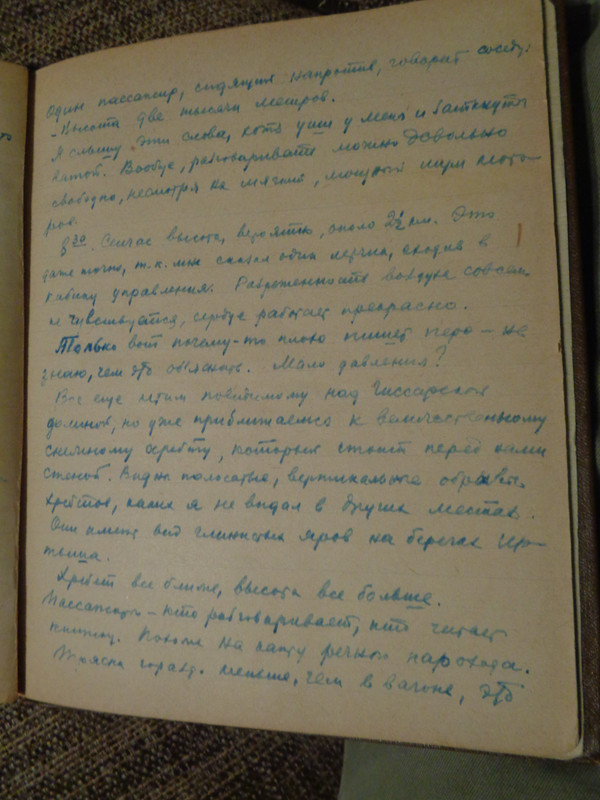 один пассажир, сидящий напротив, говорит соседу:
- Высота две тысячи метров.
Я слышу эти слова, хотя уши у меня и заткнуты
ватой. Вообще, разговаривать можно довольно
свободно, несмотря на мягкий, мощный шум мото-
ров.
8 30. Сейчас высота, вероятно, около 2½ км. Это
даже точно, т.к. мне сказал один летчик, входя в
кабину управления. Разреженность воздуха совсем
не чувствуется, сердце работает прекрасно.
Только вот почему-то плохо пишет перо - не
знаю, чем это объяснить. Мало давления?
Все еще летим повидимому над Гиссарской
долиной, но уже приближаемся к величественному
снежному хребту, который стоит перед нами
стеной. Видны полосатые, вертикальные обрывы
хребтов, каких я не видал в других местах.
Они имеют вид глинистых яров на берегах Ир-
тыша.
Хребет все ближе, высота все больше.
Пассажиры - кто разговаривает, кто читает
книжку. Похоже на каюту речного парохода.
Тряски горазд. меньше, чем в вагоне, это